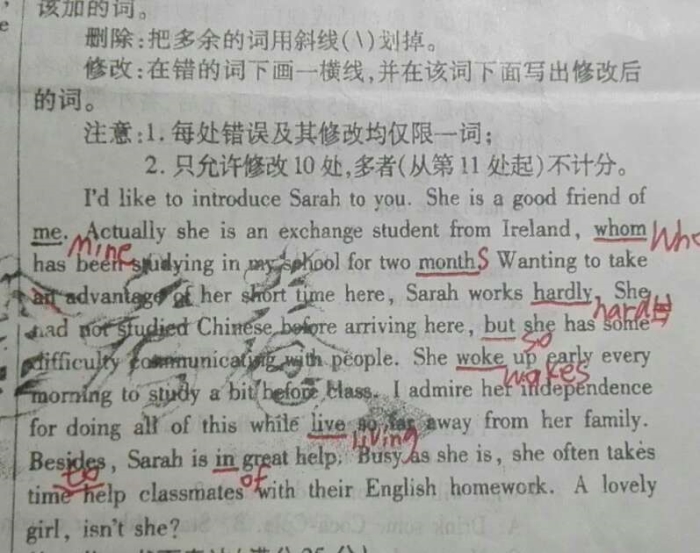 该加的词。
删除:把多余的词用斜线(\)划掉。
修改:在错的词下画一横线,并在该词下面写出修改后
的词。
注意:1. 每处错误及其修改均仅限一词;
2. 只允许修改10处,多者(从第11处起)不计分。
I'd like to introduce Sarah to you. She is a good friend of
me. Actually she is an exchange student from Ireland, whom who
mine
has been studying in my school for two month s Wanting to take
an advantage of her short time here, Sarah works hardly. She
hard
had not studied Chinese before arriving here, but she has some
so
difficulty communicating with people. She woke up early every
wakes
morning to study a bit before class. I admire her independence
for doing all of this while live so far away from her family.
living
Besides, Sarah is in great help. Busy as she is, she often takes
to of
time help classmates with their English homework. A lovely
girl, isn't she?